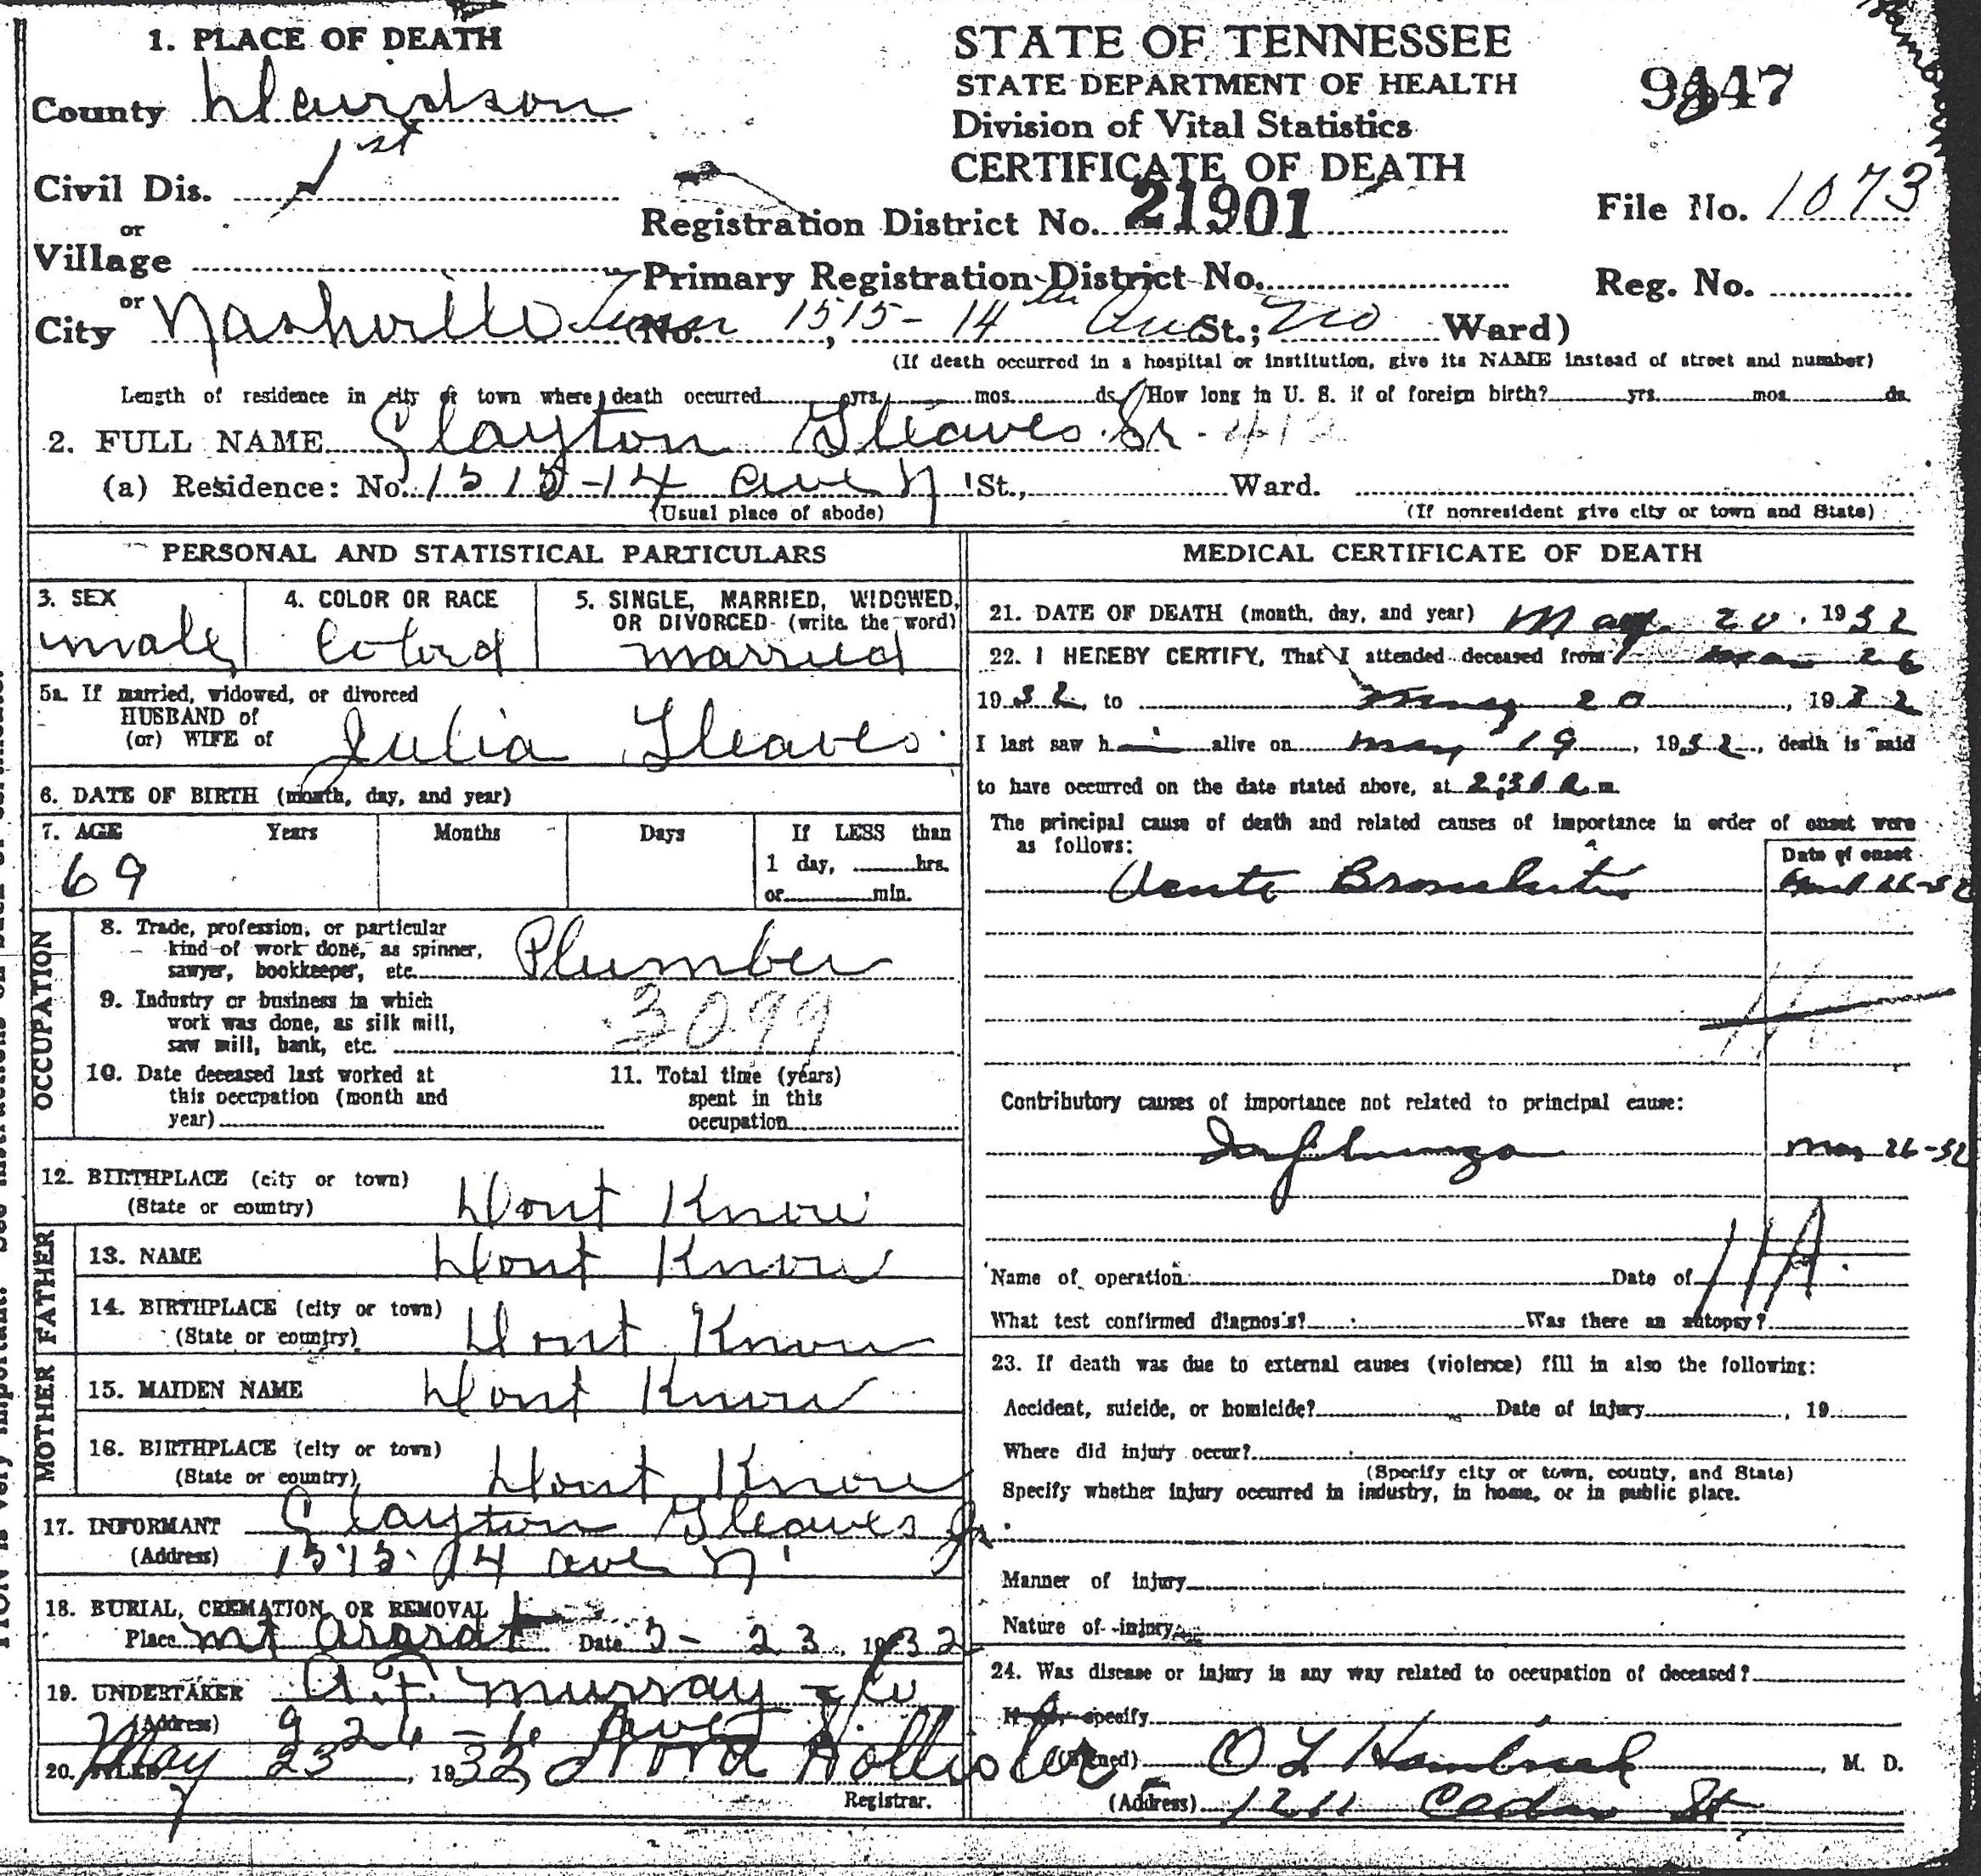 1. PLACE OF DEATH
County Davidson
Civil Dis. 1st
or
Village
or
City Nashville Tenn (No. 1515 - 14th Ave St.; No Ward)
STATE OF TENNESSEE
STATE DEPARTMENT OF HEALTH
Division of Vital Statistics
CERTIFICATE OF DEATH
Registration District No. 21901
Primary Registration District No.
File No. 1073
Reg. No.
(If death occurred in a hospital or institution, give its NAME instead of street and number)
Length of residence in city or town where death occurred yrs. mos. ds. How long in U. S. if of foreign birth? yrs. mos. ds.
2. FULL NAME Clayton Gleaves Sr.
(a) Residence: No. 1515-14 ave N St., Ward.
(Usual place of abode) (If nonresident give city or town and State)
PERSONAL AND STATISTICAL PARTICULARS
3. SEX male
4. COLOR OR RACE Colord
5. SINGLE, MARRIED, WIDOWED, OR DIVORCED (write the word) married
5a. If married, widowed, or divorced
HUSBAND of
(or) WIFE of Julia Gleaves
6. DATE OF BIRTH (month, day, and year)
7. AGE Years Months Days If LESS than
69 1 day, hrs.
or min.
OCCUPATION
8. Trade, profession, or particular
kind of work done, as spinner,
sawyer, bookkeeper, etc. Plumber
9. Industry or business in which
work was done, as silk mill,
saw mill, bank, etc. 3099
10. Date deceased last worked at
this occupation (month and
year)
11. Total time (years)
spent in this
occupation
12. BIRTHPLACE (city or town) Dont Know
(State or country)
FATHER
13. NAME Dont Know
14. BIRTHPLACE (city or town) Dont Know
(State or country)
MOTHER
15. MAIDEN NAME Dont Know
16. BIRTHPLACE (city or town) Dont Know
(State or country)
17. INFORMANT Clayton Gleaves Jr.
(Address) 1515 14 ave N
18. BURIAL, CREMATION, OR REMOVAL
Place Mt Ararat Date 5-23, 1932
19. UNDERTAKER A.F. Murray & Co
(Address) 926-6 Ave N.
20. FILED May 23, 1932 Nora Hollister
Registrar.
MEDICAL CERTIFICATE OF DEATH
21. DATE OF DEATH (month, day, and year) May 20, 1932
22. I HEREBY CERTIFY, That I attended deceased from 26
1932, to May 20, 1932
I last saw h alive on May 19, 1932, death is said
to have occurred on the date stated above, at m.
The principal cause of death and related causes of importance in order of onset were
as follows:
Date of onset
Acute Bronchitis
Contributory causes of importance not related to principal cause:
Influenza 26-32
Name of operation Date of
What test confirmed diagnosis? Was there an autopsy?
23. If death was due to external causes (violence) fill in also the following:
Accident, suicide, or homicide? Date of injury , 19
Where did injury occur?
(Specify city or town, county, and State)
Specify whether injury occurred in industry, in home, or in public place.
Manner of injury
Nature of injury
24. Was disease or injury in any way related to occupation of deceased?
If so, specify
(Signed) O L , M. D.
(Address) 1211 Cedar St